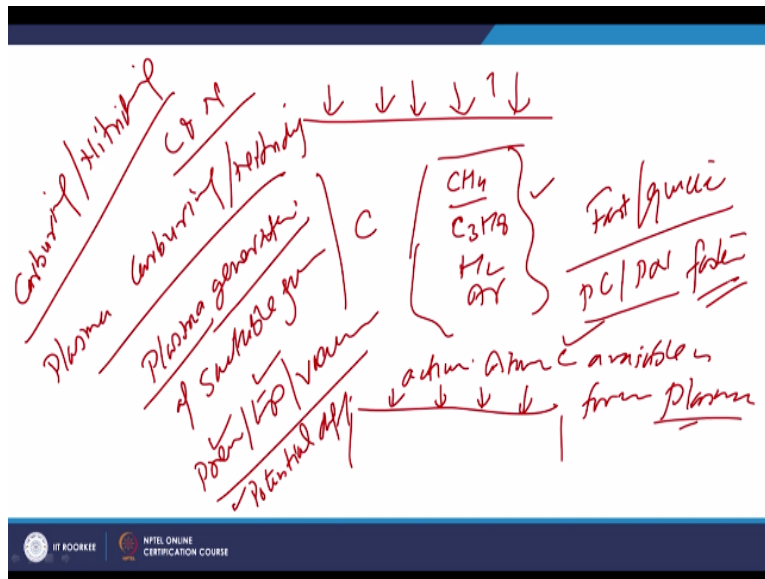 Carburing/Nitriding
C & N
Plasma Carburing/Nitriding
Plasma generation
of suitable gas
Power/LP/vacuum
Potential diff
C
CH4
C3H8
H2
Ar
Fast/quick
PC/PN faster
active C available in
form Plasma
IIT ROORKEE
NPTEL ONLINE
CERTIFICATION COURSE